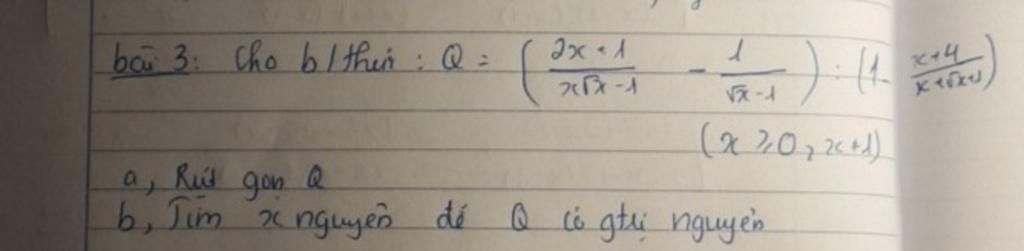 bài 3: Cho b/thức: Q = (2x+1/x√x-1 - 1/√x-1) : (1- x+4/x+√x+1)
(x ≥ 0, x ≠ 1)
a, Rút gọn Q
b, Tìm x nguyên để Q có gtrị nguyên